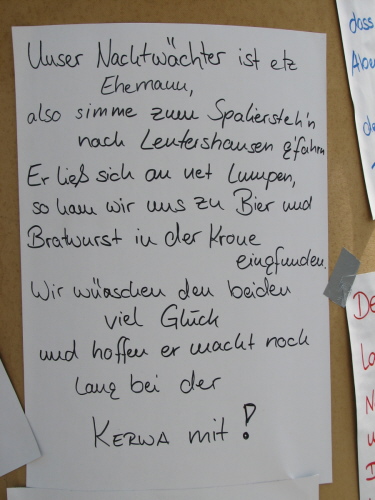 Unser Nachtwächter ist etz
Ehemann,
also simme zum Spaliersteh'n
nach Leutershausen g'fahrn
Er ließ sich an net Lumpen,
so ham wir uns zu Bier und
Bratwurst in der Krone
eingfunden.
Wir wünschen den beiden
viel Glück
und hoffen er macht noch
lang bei der
KERWA mit!
dass
De